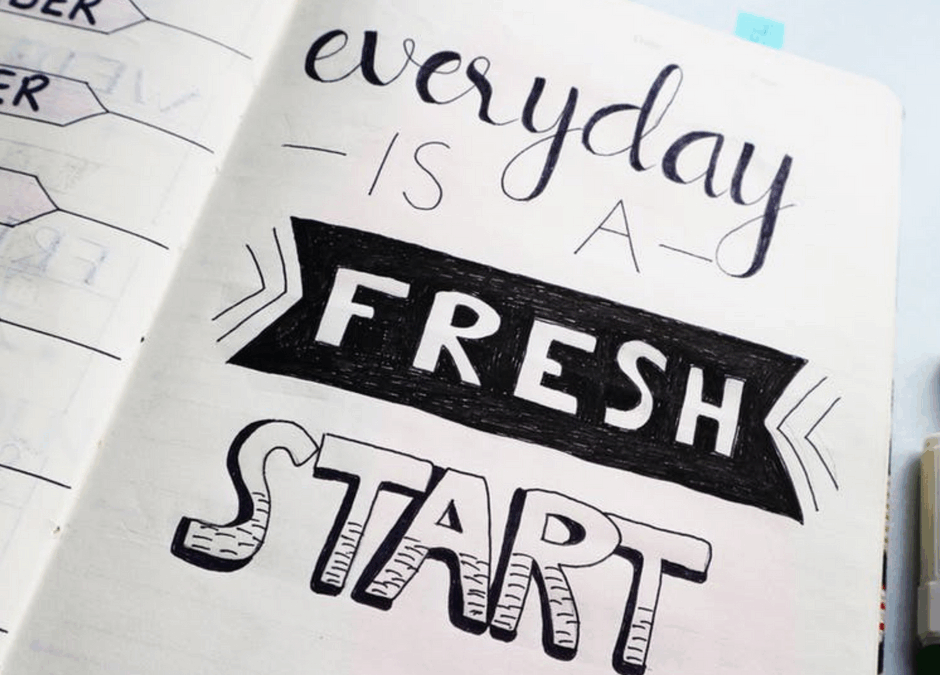 BER
ER
everyday
— IS A —
FRESH
START